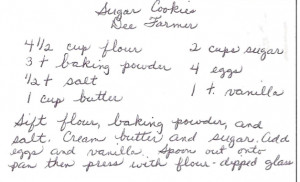 Sugar Cookies
Dee Farmer
4 1/2 cup flour 2 cups sugar
3 t baking powder 4 eggs
1/2 t salt 1 t. vanilla
1 cup butter
Sift flour, baking powder, and
salt. Cream butter and sugar. Add
eggs and vanilla. Spoon out onto
pan then press with flour-dipped glass